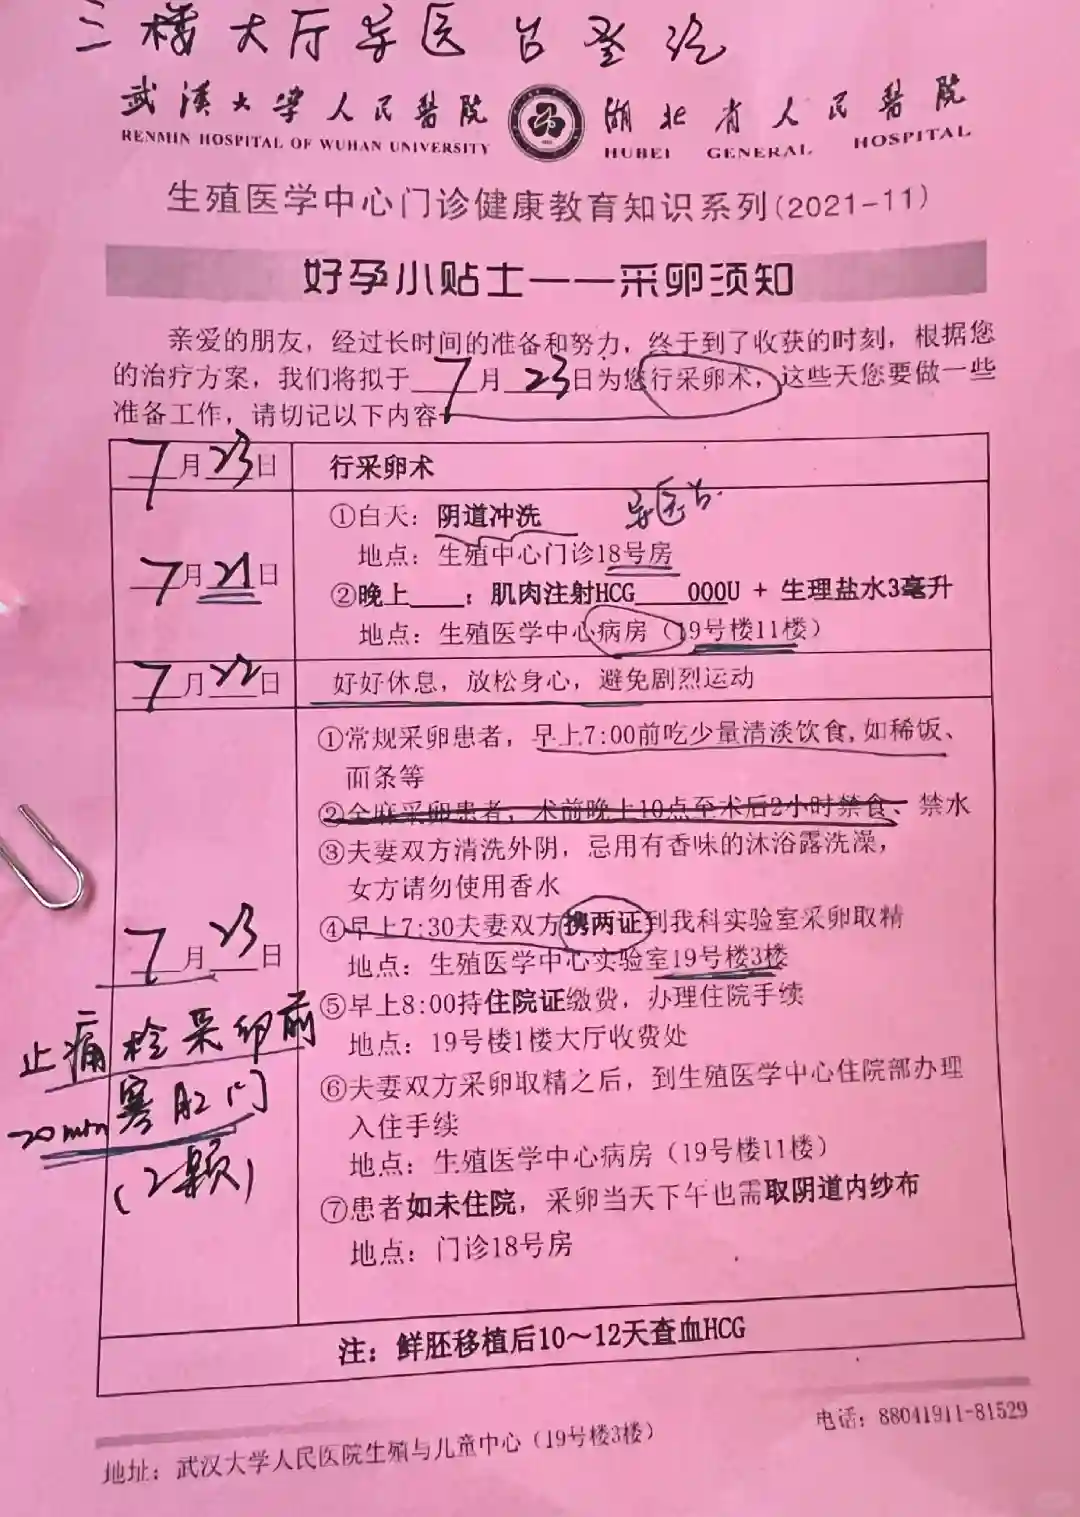 三楼大厅导医台登记
武漢大學人民醫院 湖北省人民醫院
RENMIN HOSPITAL OF WUHAN UNIVERSITY HUBEI GENERAL HOSPITAL
生殖医学中心门诊健康教育知识系列(2021-11)
好孕小贴士——采卵须知
亲爱的朋友，经过长时间的准备和努力，终于到了收获的时刻，根据您
的治疗方案，我们将拟于 7 月 23 日为您行采卵术，这些天您要做一些
准备工作，请切记以下内容
7月23日 行采卵术
①白天：阴道冲洗 导医台
地点：生殖中心门诊18号房
7月21日
②晚上____：肌肉注射HCG____000U + 生理盐水3毫升
地点：生殖医学中心病房（19号楼11楼）
7月22日 好好休息，放松身心，避免剧烈运动
①常规采卵患者，早上7:00前吃少量清淡饮食,如稀饭、
面条等
②全麻采卵患者，术前晚上10点至术后2小时禁食、禁水
③夫妻双方清洗外阴，忌用有香味的沐浴露洗澡，
女方请勿使用香水
④早上7:30夫妻双方携两证到我科实验室采卵取精
7月23日
地点：生殖医学中心实验室19号楼3楼
⑤早上8:00持住院证缴费，办理住院手续
地点：19号楼1楼大厅收费处
⑥夫妻双方采卵取精之后，到生殖医学中心住院部办理
入住手续
地点：生殖医学中心病房（19号楼11楼）
⑦患者如未住院，采卵当天下午也需取阴道内纱布
地点：门诊18号房
止痛栓采卵前
20min塞肛门
(2颗)
注：鲜胚移植后10～12天查血HCG
地址：武汉大学人民医院生殖与儿童中心（19号楼3楼） 电话：88041911-81529